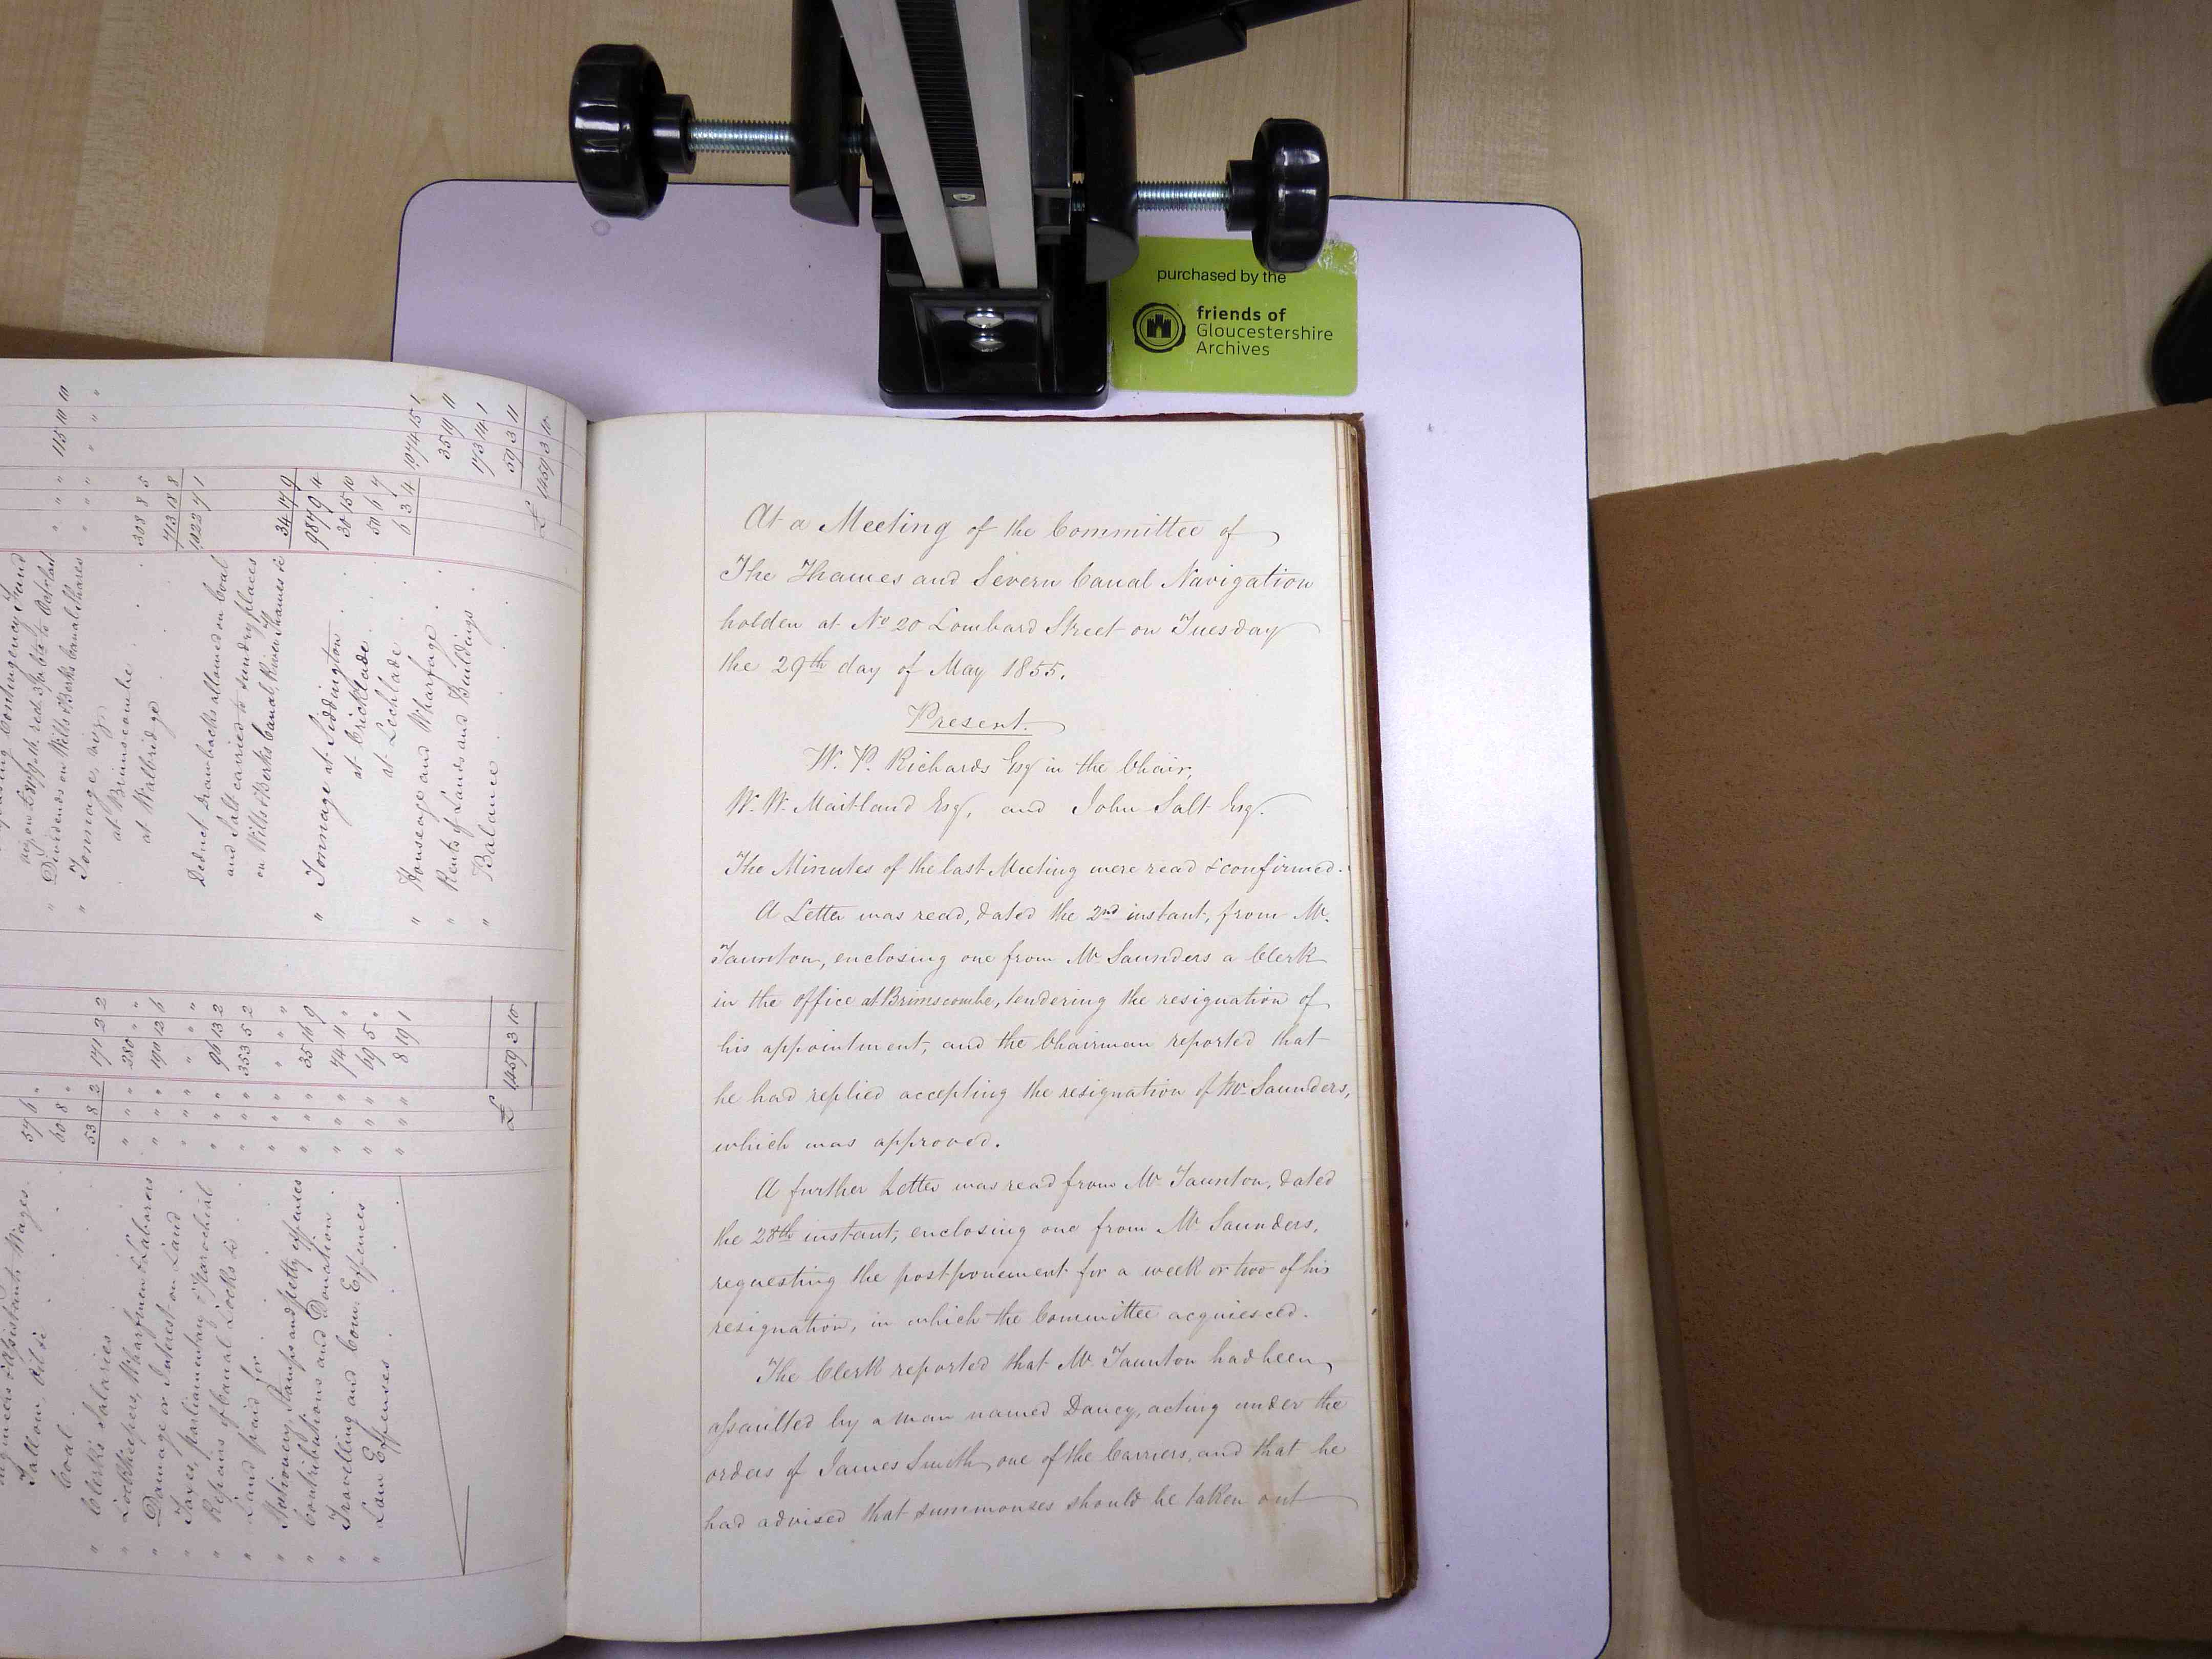 purchased by the
friends of
Gloucestershire
Archives
At a Meeting of the Committee of
The Thames and Severn Canal Navigation
holden at No 20 Lombard Street on Tuesday
the 29th day of May 1855.
Present.
W. P. Richards Esq in the Chair,
W. W. Maitland Esq, and John Salt Esq.
The Minutes of the last Meeting were read & confirmed.
A Letter was read, dated the 2nd instant, from Mr.
Taunton, enclosing one from Mr Saunders a Clerk
in the office at Brimscombe, tendering the resignation of
his appointment, and the Chairman reported that
he had replied accepting the resignation of Mr Saunders,
which was approved.
A further Letter was read from Mr Taunton, dated
the 28th instant, enclosing one from Mr Saunders,
requesting the postponement for a week or two of his
resignation, in which the Committee acquiesced.
The Clerk reported that Mr Taunton had been
assaulted by a man named Dancy, acting under the
orders of James Smith, one of the Carriers, and that he
had advised that summonses should be taken out
Contingency Fund
" Dividends on Wilts & Berks Canal Shares
" Tonnage, viz
at Brimscombe . 308 8 5
at Walbridge . 713 18 8
1022 7 1
Deduct drawbacks allowed on Coal
and Salt carried to sundry places
on Wilts & Berks Canal, River Thames &c 34 17 9
987 9 4
" Tonnage at Siddington . 30 15 10
at Cricklade . 50 6 7
at Lechlade . 6 3 4 1074 15 1
" Houseage and Wharfage . 35 19 11
" Rents of Lands and Buildings . 173 14 1
" Balance . 59 3 11
£ 1459 3 10
Wages
Tallow, Oil &c 57 6 "
Coal 60 8 "
" Clerks Salaries 53 8 2 171 2 2
" Lockkeepers, Wharfingers & Laborers " " " 280 " "
" Damage or Interest on Land " " " 190 12 6
" Taxes, parliamentary & Parochial " " " " " "
" Repairs of Canal Locks &c " " " 96 13 2
" Land paid for " " " 353 5 2
" Stationery, Stamps and petty expenses " " " " " "
" Contributions and Donation " " " 35 16 9
" Travelling and Com: Expences " " " 74 11 "
" Law Expenses " " " 69 5 "
8 19 1
£ 1459 3 10